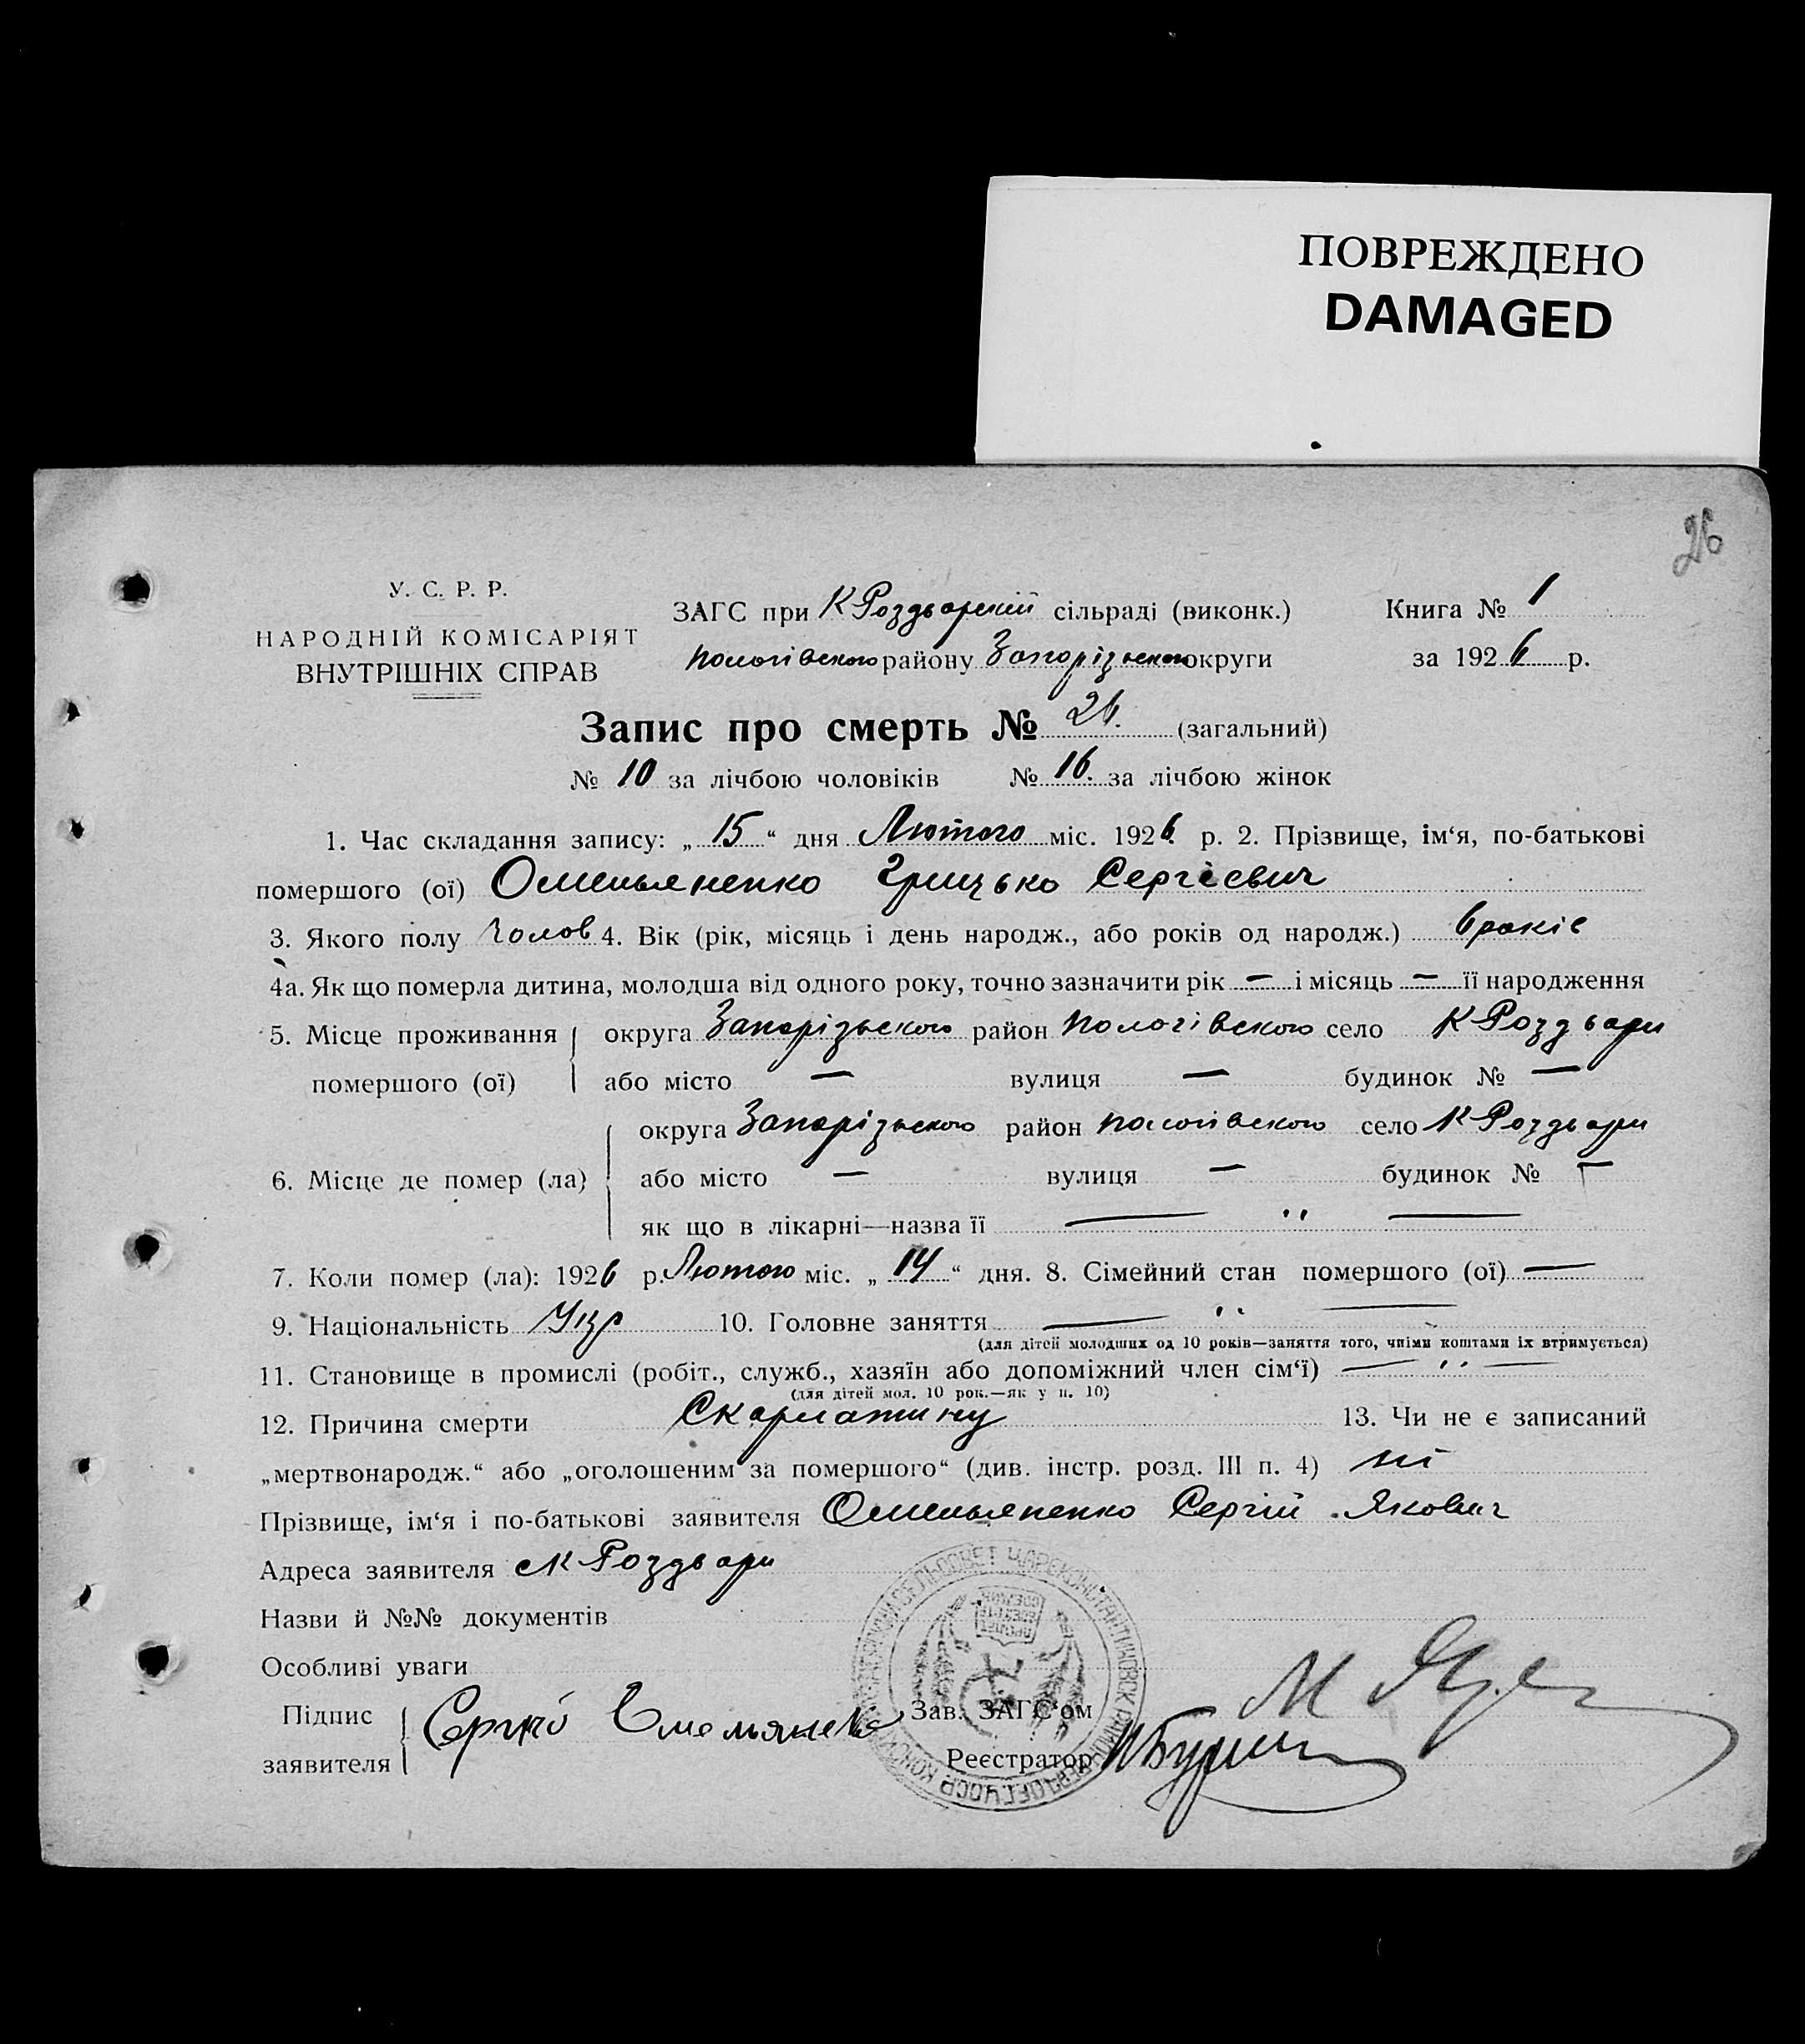 ПОВРЕЖДЕНО
DAMAGED
26
У. С. Р. Р.
НАРОДНІЙ КОМІСАРІЯТ
ВНУТРІШНІХ СПРАВ
ЗАГС при К Роздорскій сільраді (виконк.) Книга № 1
Пологівского району Запорізьского округи за 1926 р.
Запис про смерть № 26. (загальний)
№ 10 за лічбою чоловіків № 16. за лічбою жінок
1. Час складання запису: „15“ дня Лютого міс. 1926 р. 2. Прізвище, ім‘я, по-батькові
помершого (ої) Омельяненко Грицько Сергієвич
3. Якого полу Чолов 4. Вік (рік, місяць і день народж., або років од народж.) 6 років
4а. Як що померла дитина, молодша від одного року, точно зазначити рік — і місяць — її народження
5. Місце проживання помершого (ої) округа Запорізьского район Пологівского село К Роздори
або місто — вулиця — будинок № —
6. Місце де помер (ла) округа Запорізьского район Пологівского село К Роздори
або місто — вулиця — будинок № —
як що в лікарні—назва її — " —
7. Коли помер (ла): 1926 р. Лютого міс. „14“ дня. 8. Сімейний стан помершого (ої) —
9. Національність Укр 10. Головне заняття — " —
(для дітей молодших од 10 років—заняття того, чиїми коштами їх втримується)
11. Становище в промислі (робіт., служб., хазяїн або допоміжний член сім‘ї) — " —
(для дітей мол. 10 рок.—як у п. 10)
12. Причина смерти Скарлатину 13. Чи не є записаний
„мертвонародж.“ або „оголошеним за помершого“ (див. інстр. розд. III п. 4) ні
Прізвище, ім‘я і по-батькові заявителя Омельяненко Сергій Якович
Адреса заявителя с К Роздори
Назви й №№ документів
Особливі уваги
Підпис заявителя Сергій Зав. ЗАГС‘ом
Реєстратор